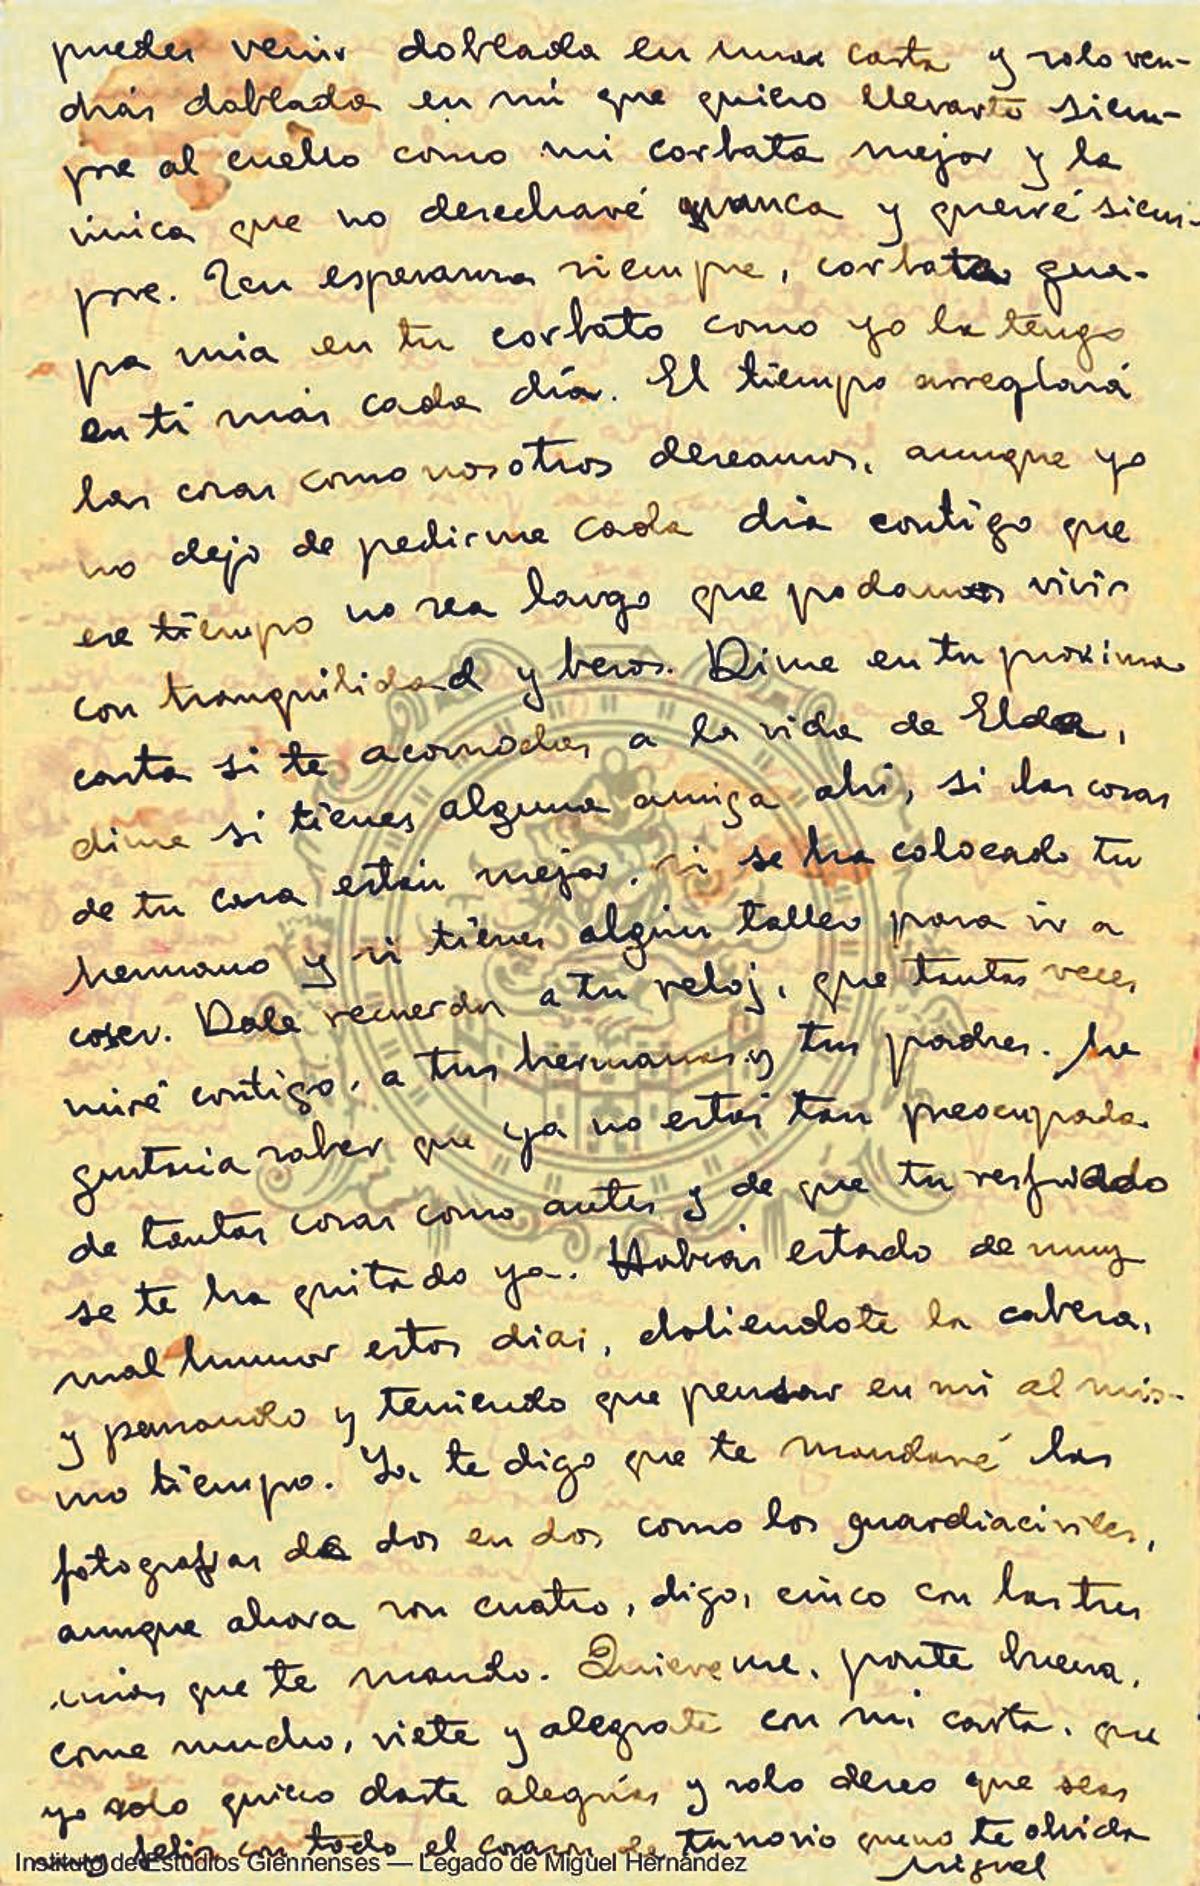 puedes venir doblada en una carta y solo ven-
drás doblada en mí que quiero llevarte siem-
pre al cuello como mi corbata mejor y la
única que no desecharé nunca y querré siem-
pre. Ten esperanza siempre, corbata gua-
pa mia en tu corbato como yo la tengo
en ti más cada día. El tiempo arreglará
las cosas como nosotros deseamos, aunque yo
no dejo de pedirme cada día contigo que
ese tiempo no sea largo que podamos vivir
con tranquilidad y besos. Dime en tu proxima
carta si te acomodas a la vida de Elda,
dime si tienes alguna amiga ahí, si las cosas
de tu casa están mejor, si se ha colocado tu
hermano y si tienes algún taller para ir a
coser. Dale recuerdos a tu reloj, que tantas veces
miré contigo, a tus hermanas y tus padres. Me
gustaria saber que ya no estás tan preocupada
de tantas cosas como antes y de que tu resfriado
se te ha quitado ya. Habrás estado de muy
mal humor estos dias, doliendote la cabeza,
y penando y teniendo que pensar en mí al mis-
mo tiempo. Ya te digo que te mandaré las
fotografías de dos en dos como los guardiaciviles,
aunque ahora son cuatro, digo, cinco con las tres
mias que te mando. Quiereme, ponte buena,
come mucho, viste y alegrate con mi carta, que
yo solo quiero darte alegrías y solo deseo que seas
muy feliz con todo el corazon de tu novio que no te olvida
Miguel
Instituto de Estudios Giennenses — Legado de Miguel Hernández